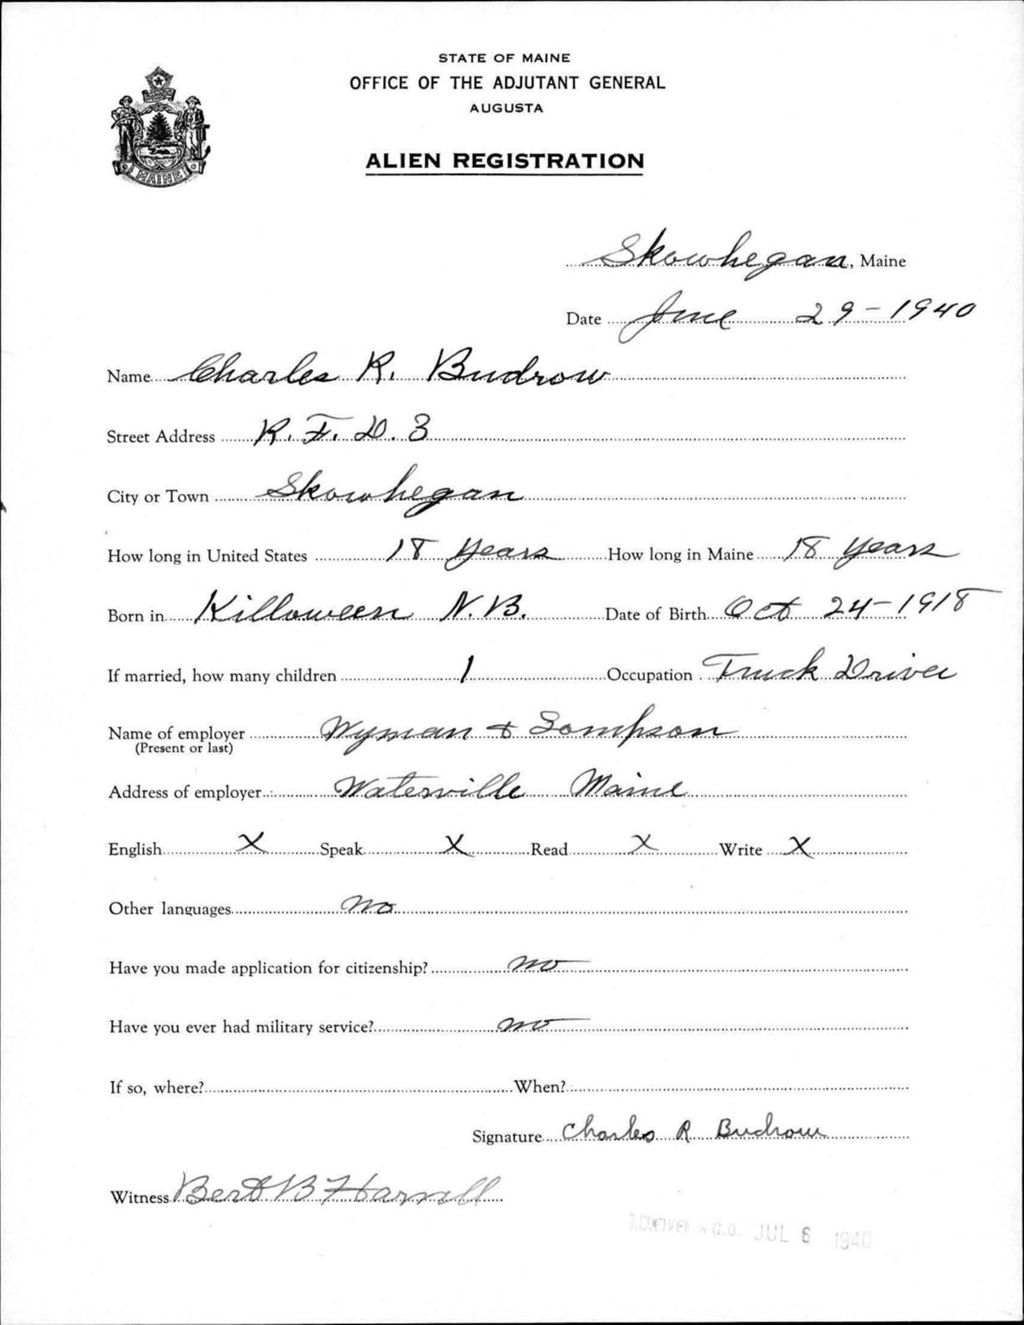 STATE OF MAINE
OFFICE OF THE ADJUTANT GENERAL
AUGUSTA
MAINE
ALIEN REGISTRATION
Skowhegan, Maine
Date June 29-1940
Name Charles R. Budrow
Street Address R.F.D. 3
City or Town Skowhegan
How long in United States 18 years How long in Maine 18 years
Born in Killoween N.B. Date of Birth Oct 24-1918
If married, how many children 1 Occupation Truck Driver
Name of employer Wyman & Sompson
(Present or last)
Address of employer Waterville Maine
English X Speak X Read X Write X
Other languages no
Have you made application for citizenship? no
Have you ever had military service? no
If so, where? When?
Signature Charles R Budrow
Witness Bert B Harvill
A.G.O. JUL 6 1940